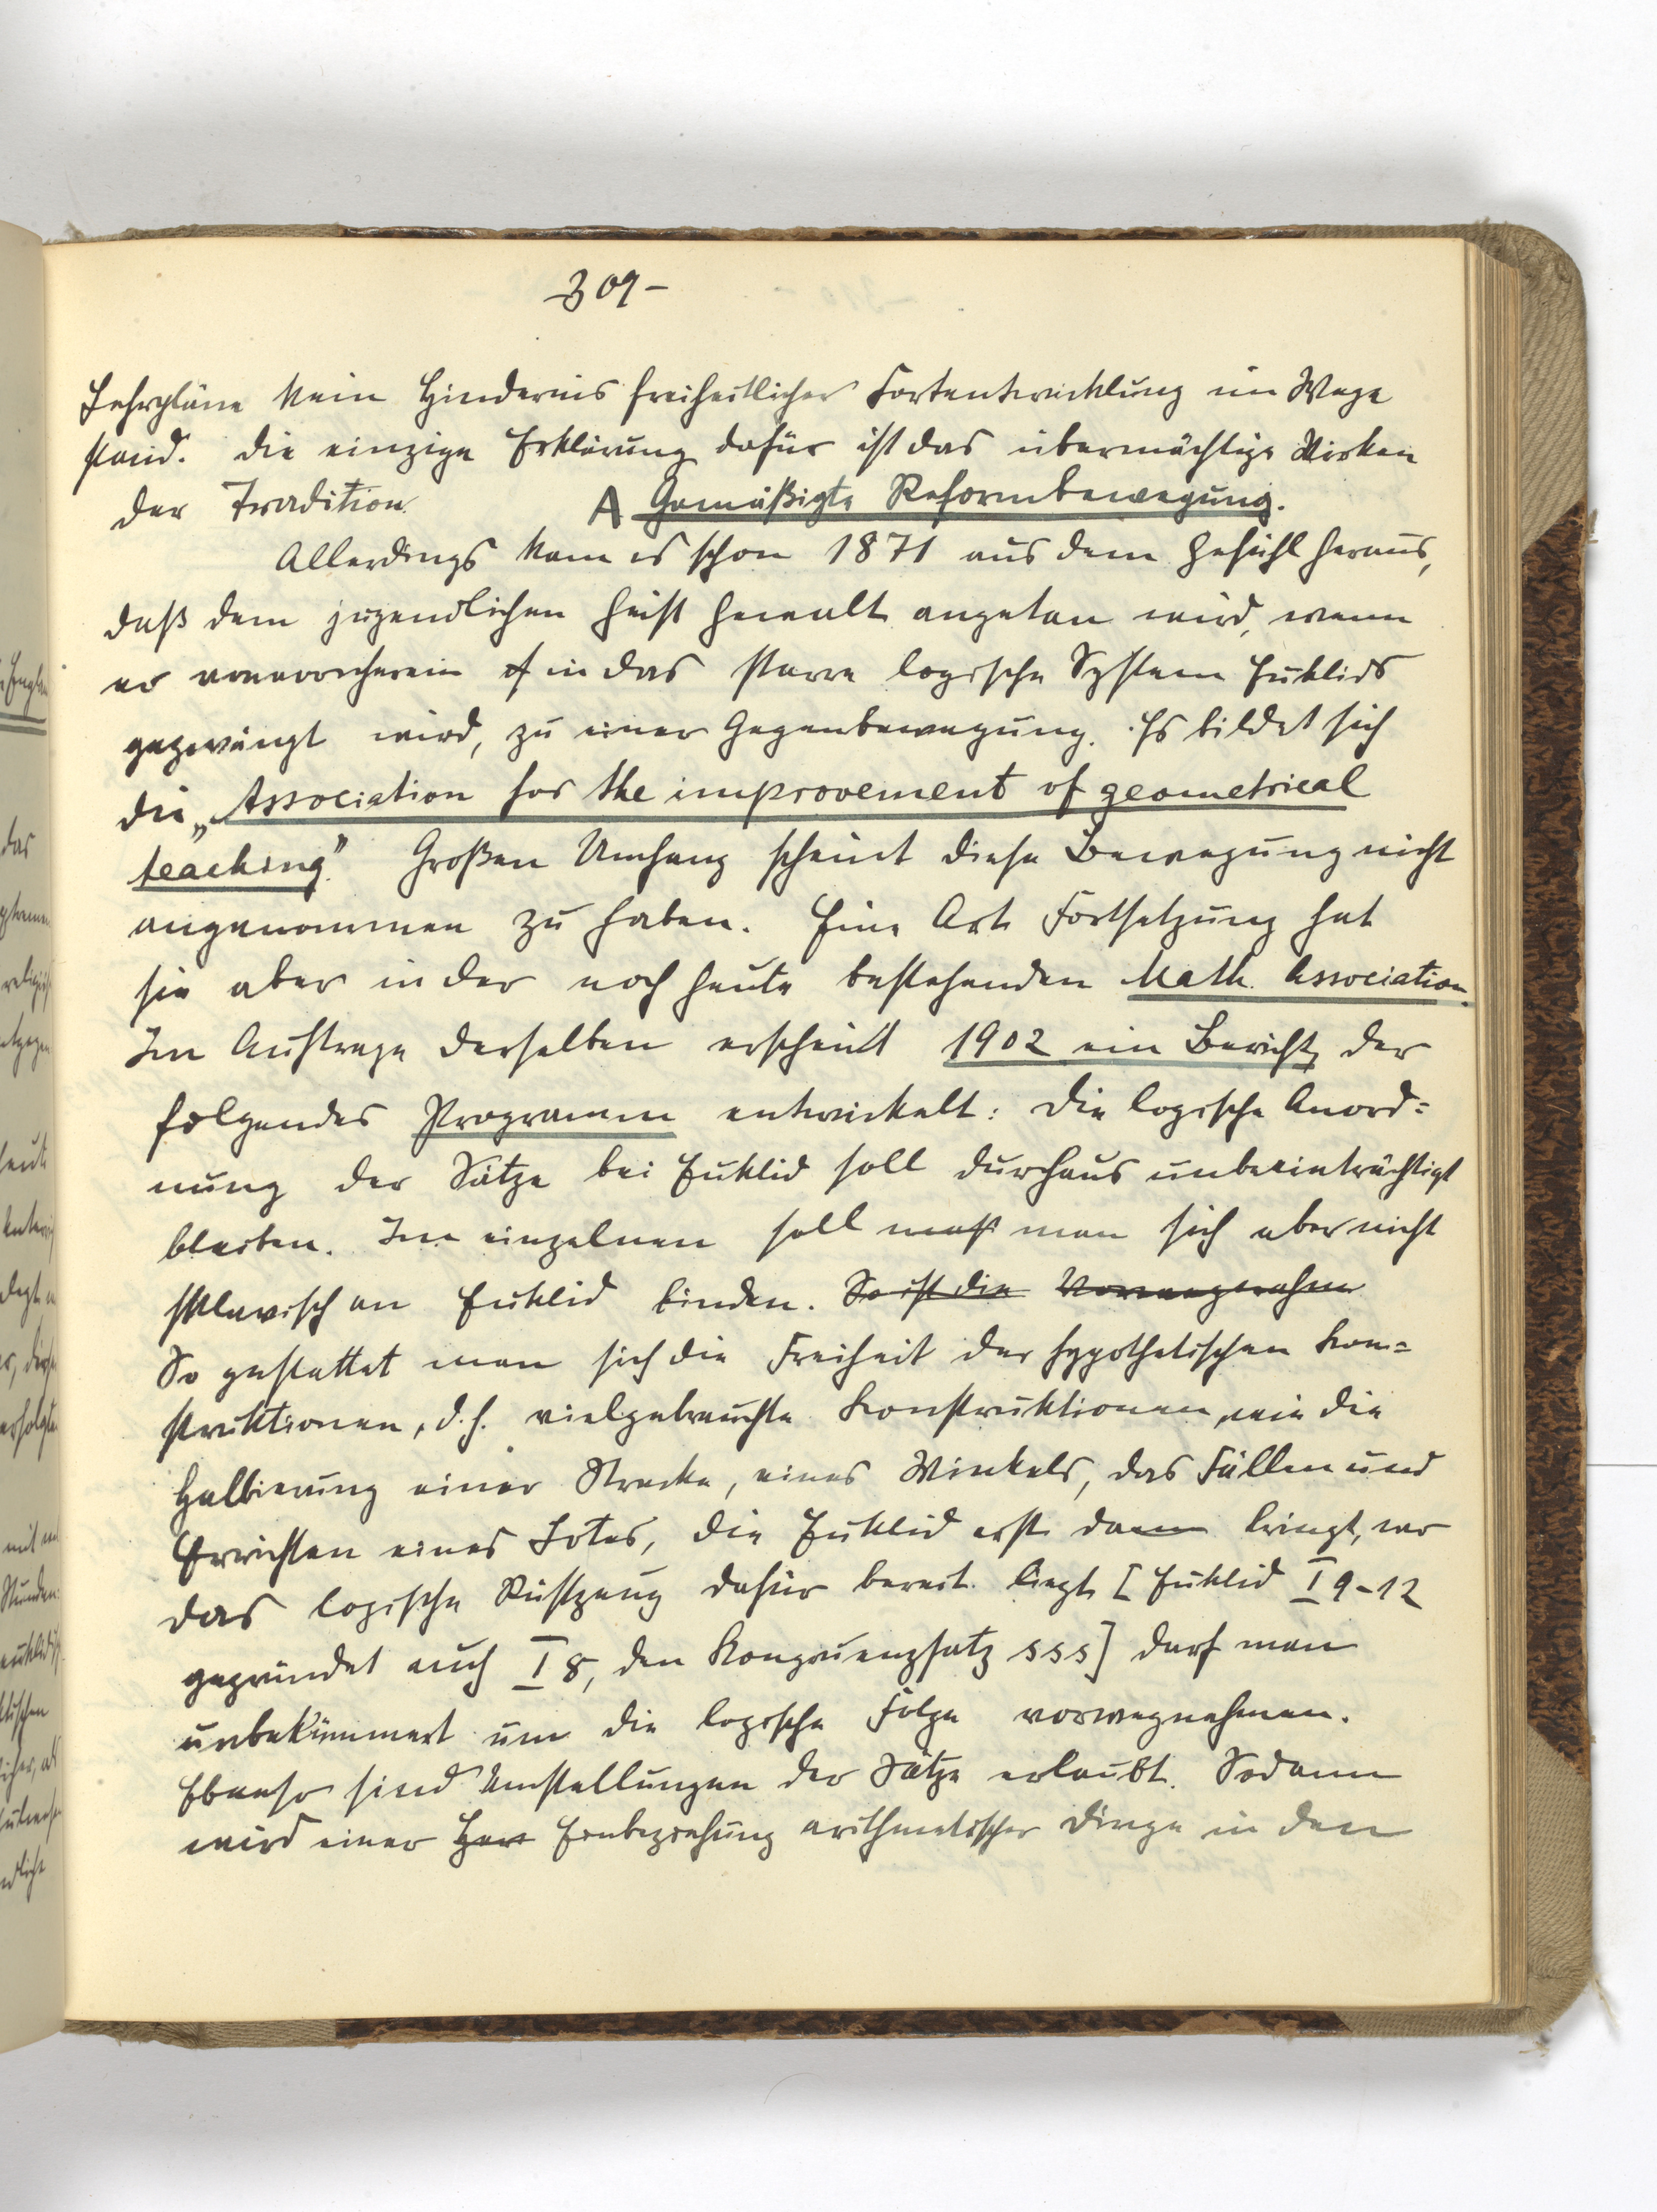 -309-
Lehrpläne kein Hindernis freiheitlicher Fortentwicklung im Wege
stand. Die einzige Erklärung dafür ist das übermächtige Wirken
der Tradition.
A Gemäßigte Reformbewegung.
Allerdings kam es schon 1871 aus dem Gefühl heraus,
daß dem jugendlichen Geist Gewalt angetan wird, wenn
er vonvorcherein in das starre logische System Euklids
gezwängt wird, zu einer Gegenbewegung. Es bildet sich
die „Association for the improvement of geometrical
teaching." Großen Umfang scheint diese Bewegung nicht
angenommen zu haben. Eine Art Fortsetzung hat
sie aber in der noch heute bestehenden Math. Association.
Im Auftrage derselben erscheint 1902 ein Bericht, der
folgendes Programm entwickelt: Die logische Anord=
nung der Sätze bei Euklid soll durchaus unbeeinträchtigt
bleiben. Im einzelnen soll man sich aber nicht
sklavisch an Euklid binden. So ist die Vorwegnahme
So gestattet man sich die Freiheit der hypothetischen Kon=
struktionen, d.h. vielgebrauchte Konstruktionen, wie die
Halbierung einer Strecke, eines Winkels, das Fällen und
Errichten eines Lotes, die Euklid erst dann bringt, wo
das logische Rüstzeug dafür bereit liegt [Euklid I 9-12
gegründet auch I 8, den Kongruenzsatz sss] darf man
unbekümmert um die logische Folge vorwegnehmen.
Ebenso sind Umstellungen der Sätze erlaubt. Sodann
wird einer Her Einbeziehung arithmetischer Dinge in den